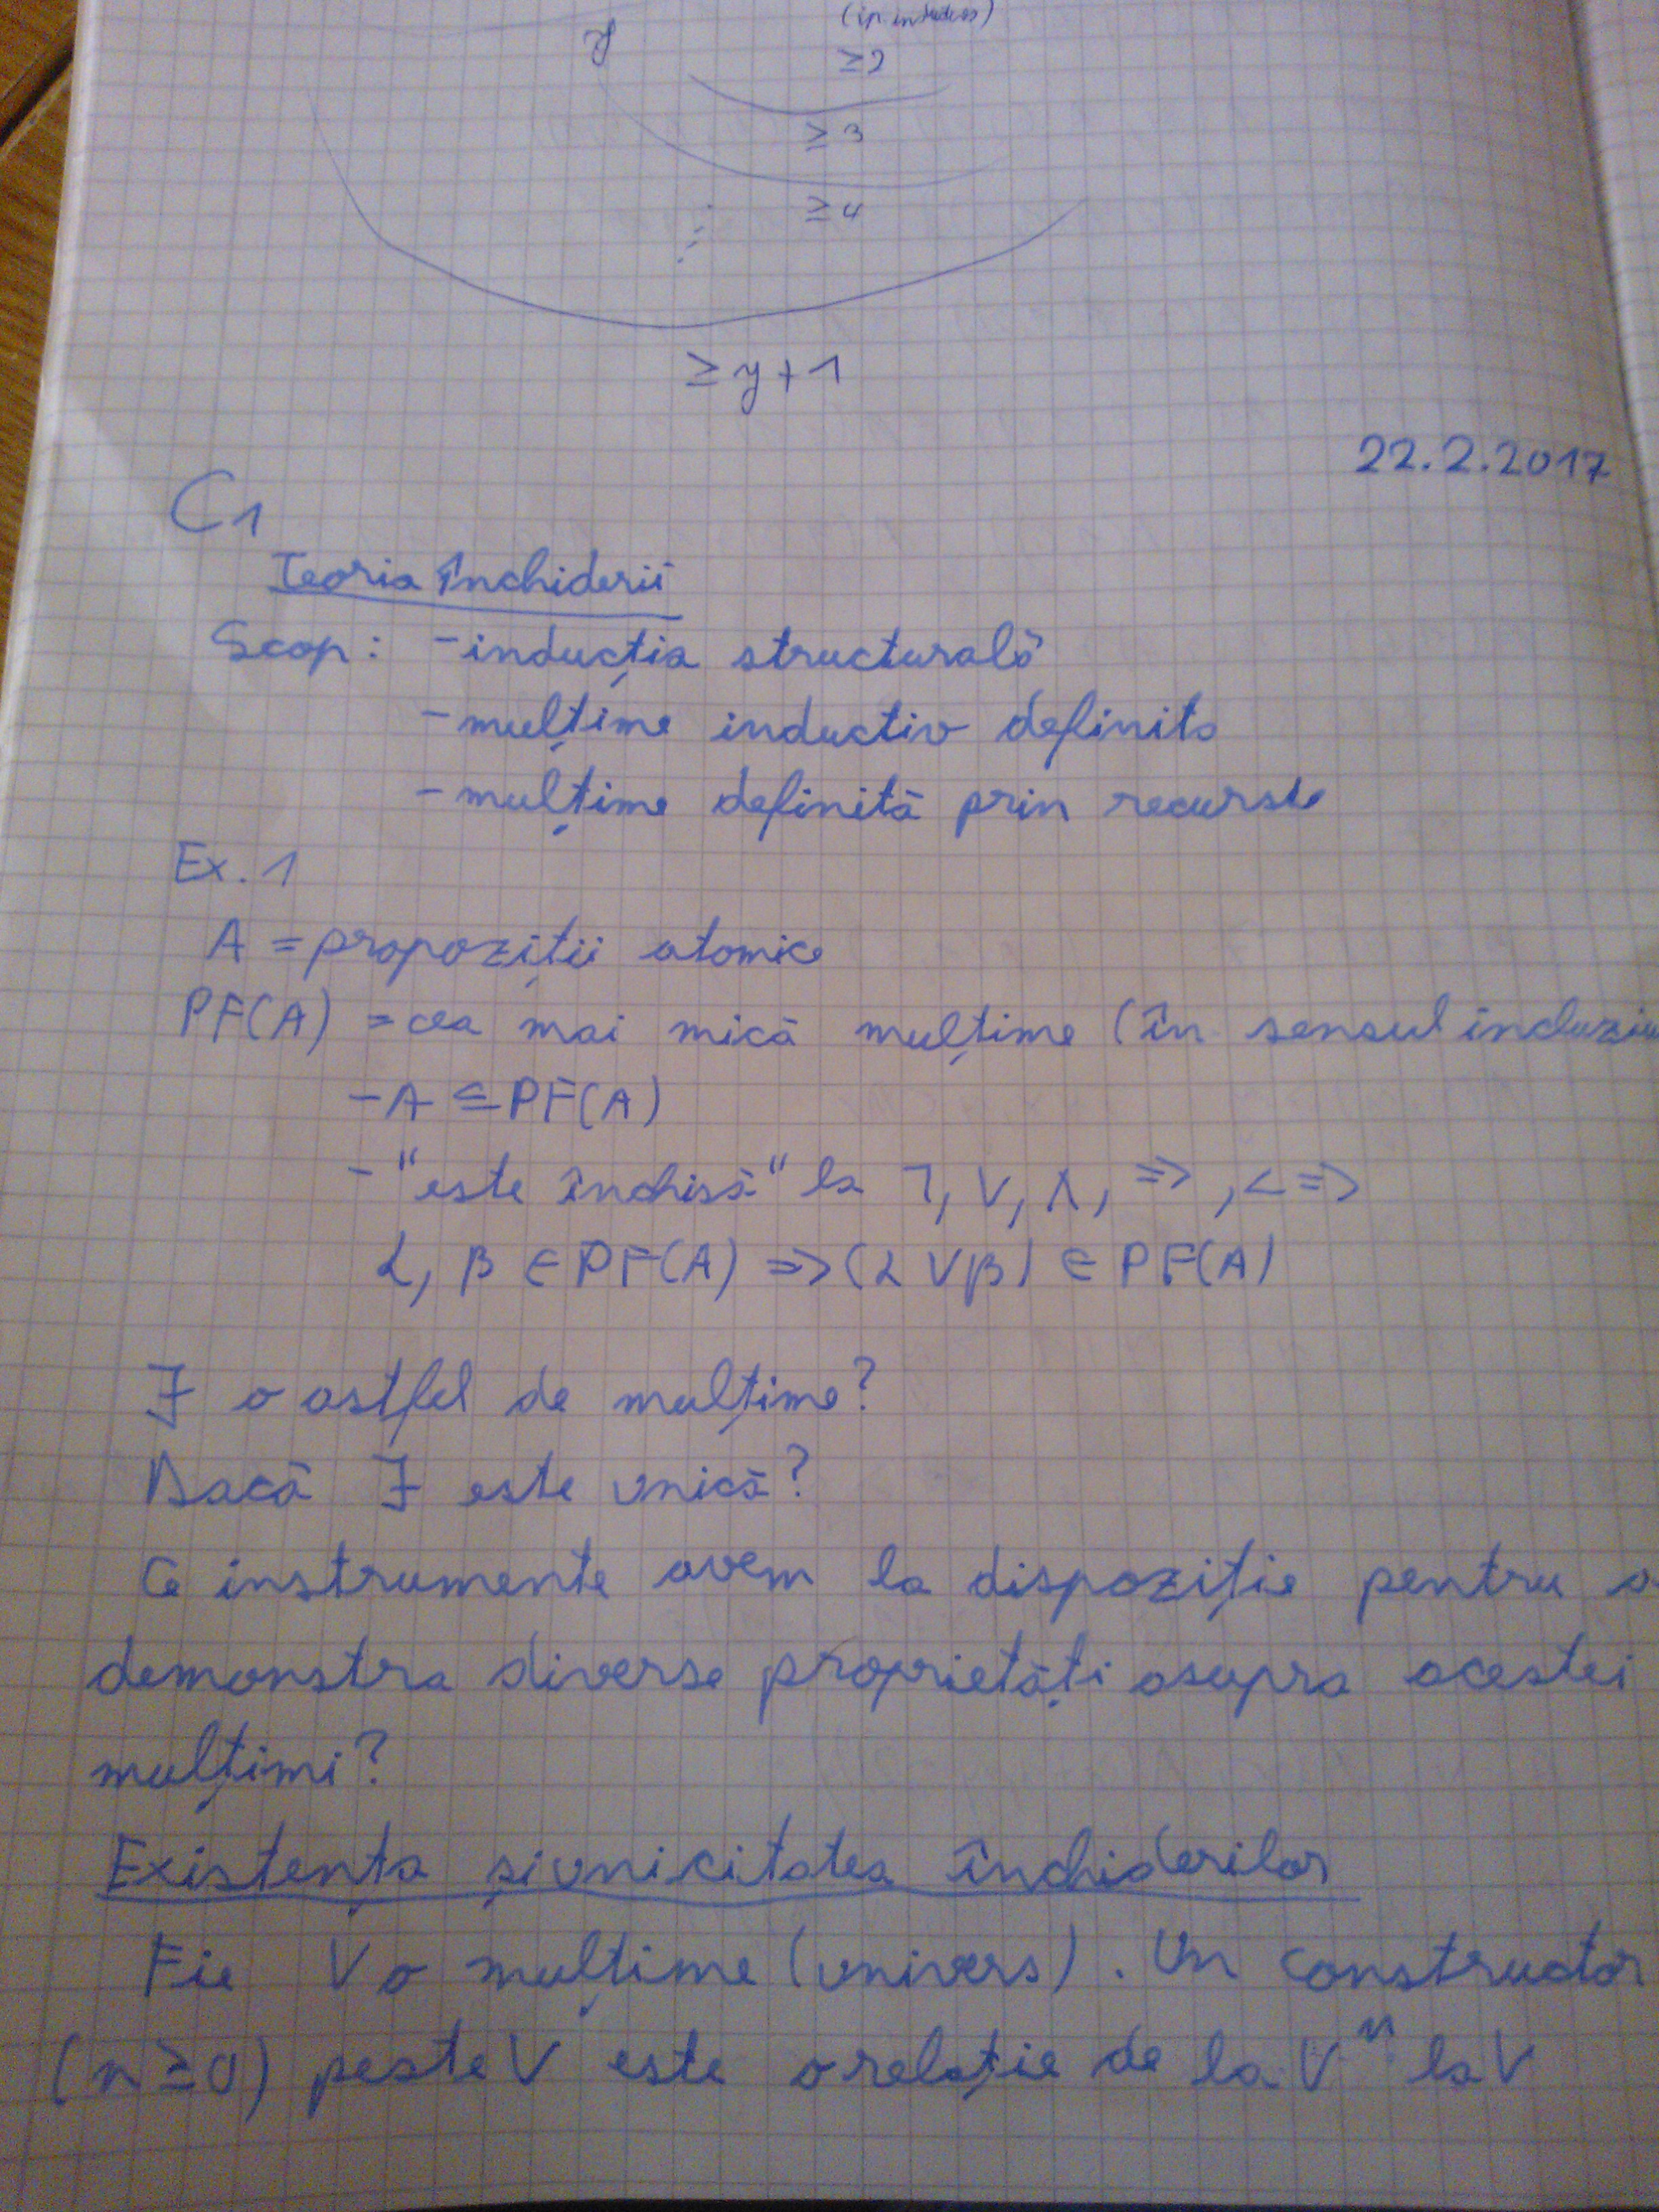 y
≥2
≥3
≥4
≥y+1
22.2.2017
C1
Teoria închiderii
Scop: -inducția structurală
-mulțime inductiv definită
-mulțime definită prin recursie
Ex. 1
A = propoziții atomice
PF(A) = cea mai mică mulțime (în sensul incluziu
-A ⊆ PF(A)
-"este închisă" la ⌐, ∨, ∧, =>, <=>
α, β ∈ PF(A) => (α ∨ β) ∈ PF(A)
∃ o astfel de mulțime?
Dacă ∃ este unică?
Ce instrumente avem la dispoziție pentru a
demonstra diverse proprietăți asupra acestei
mulțimi?
Existența și unicitatea închiderilor
Fie V o mulțime (univers). Un constructor
(n≥0) peste V este o relație de la Vⁿ la V